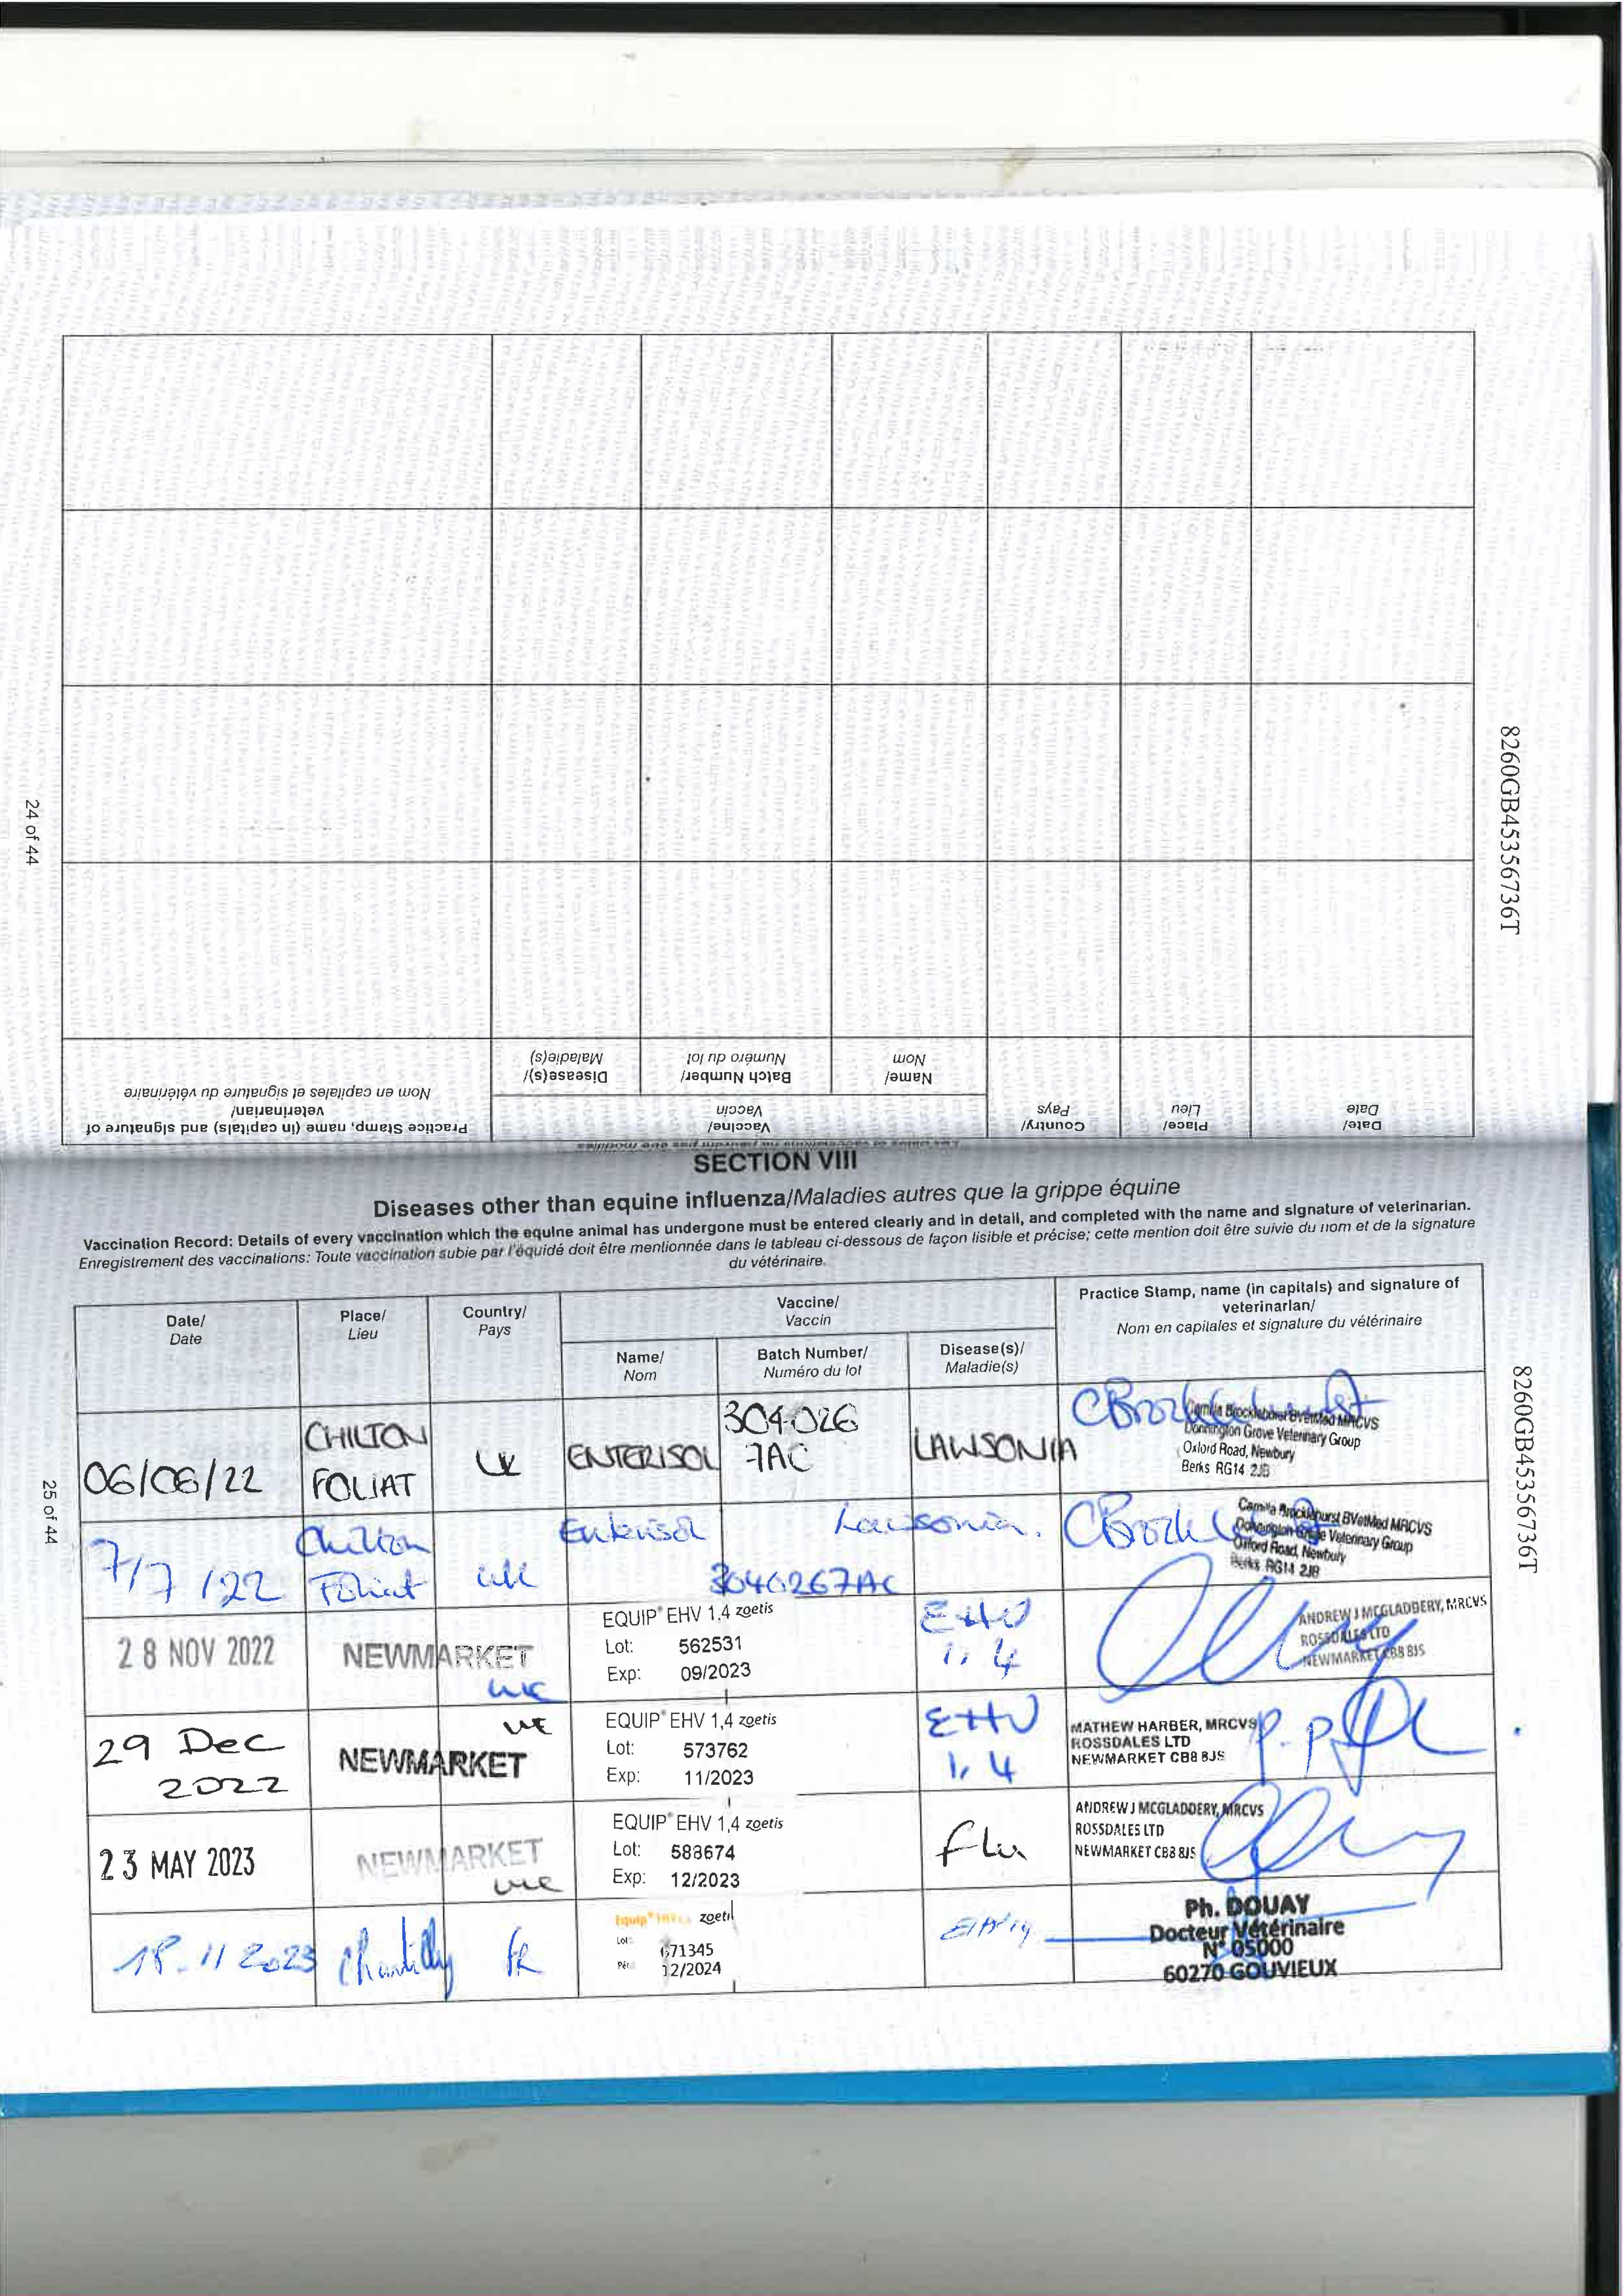 24 of 44
8260GB45356736T
Practice Stamp, name (in capitals) and signature of
veterinarian/
Nom en capitales et signature du vétérinaire
Vaccine/
Vaccin
Disease(s)/
Maladie(s)
Batch Number/
Numéro du lot
Name/
Nom
Country/
Pays
Place/
Lieu
Date/
Date
SECTION VIII
Diseases other than equine influenza/Maladies autres que la grippe équine
Vaccination Record: Details of every vaccination which the equine animal has undergone must be entered clearly and in detail, and completed with the name and signature of veterinarian.
Enregistrement des vaccinations: Toute vaccination subie par l'équidé doit être mentionnée dans le tableau ci-dessous de façon lisible et précise; cette mention doit être suivie du nom et de la signature
du vétérinaire.
Date/
Date
Place/
Lieu
Country/
Pays
Vaccine/
Vaccin
Name/
Nom
Batch Number/
Numéro du lot
Disease(s)/
Maladie(s)
Practice Stamp, name (in capitals) and signature of
veterinarian/
Nom en capitales et signature du vétérinaire
06/06/22
CHILTON
FOLIAT
UK
ENTERISOL
304026
7AC
LAWSONIA
Camilla Brocklehurst BVetMed MRCVS
Donnington Grove Veterinary Group
Oxford Road, Newbury
Berks RG14 2JB
7/7/22
Chilton
Foliat
UK
Enterisol
3040267AC
Lawsonia.
Camilla Brocklehurst BVetMed MRCVS
Donnington Grove Veterinary Group
Oxford Road, Newbury
Berks RG14 2JB
28 NOV 2022
NEWMARKET
UK
EQUIP® EHV 1,4 zoetis
Lot: 562531
Exp: 09/2023
EHV
1, 4
ANDREW J MCGLADDERY, MRCVS
ROSSDALES LTD
NEWMARKET CB8 8JS
29 Dec
2022
UK
NEWMARKET
EQUIP® EHV 1,4 zoetis
Lot: 573762
Exp: 11/2023
EHV
1, 4
MATHEW HARBER, MRCVS
ROSSDALES LTD
NEWMARKET CB8 8JS
p.p
23 MAY 2023
NEWMARKET
UK
EQUIP® EHV 1,4 zoetis
Lot: 588674
Exp: 12/2023
flu
ANDREW J MCGLADDERY, MRCVS
ROSSDALES LTD
NEWMARKET CB8 8JS
18.11 2023
Chantilly
FR
Equip® zoetis
Lot: 671345
12/2024
Ph. DOUAY
Docteur Vétérinaire
N° 05000
60270 GOUVIEUX
25 of 44
8260GB45356736T